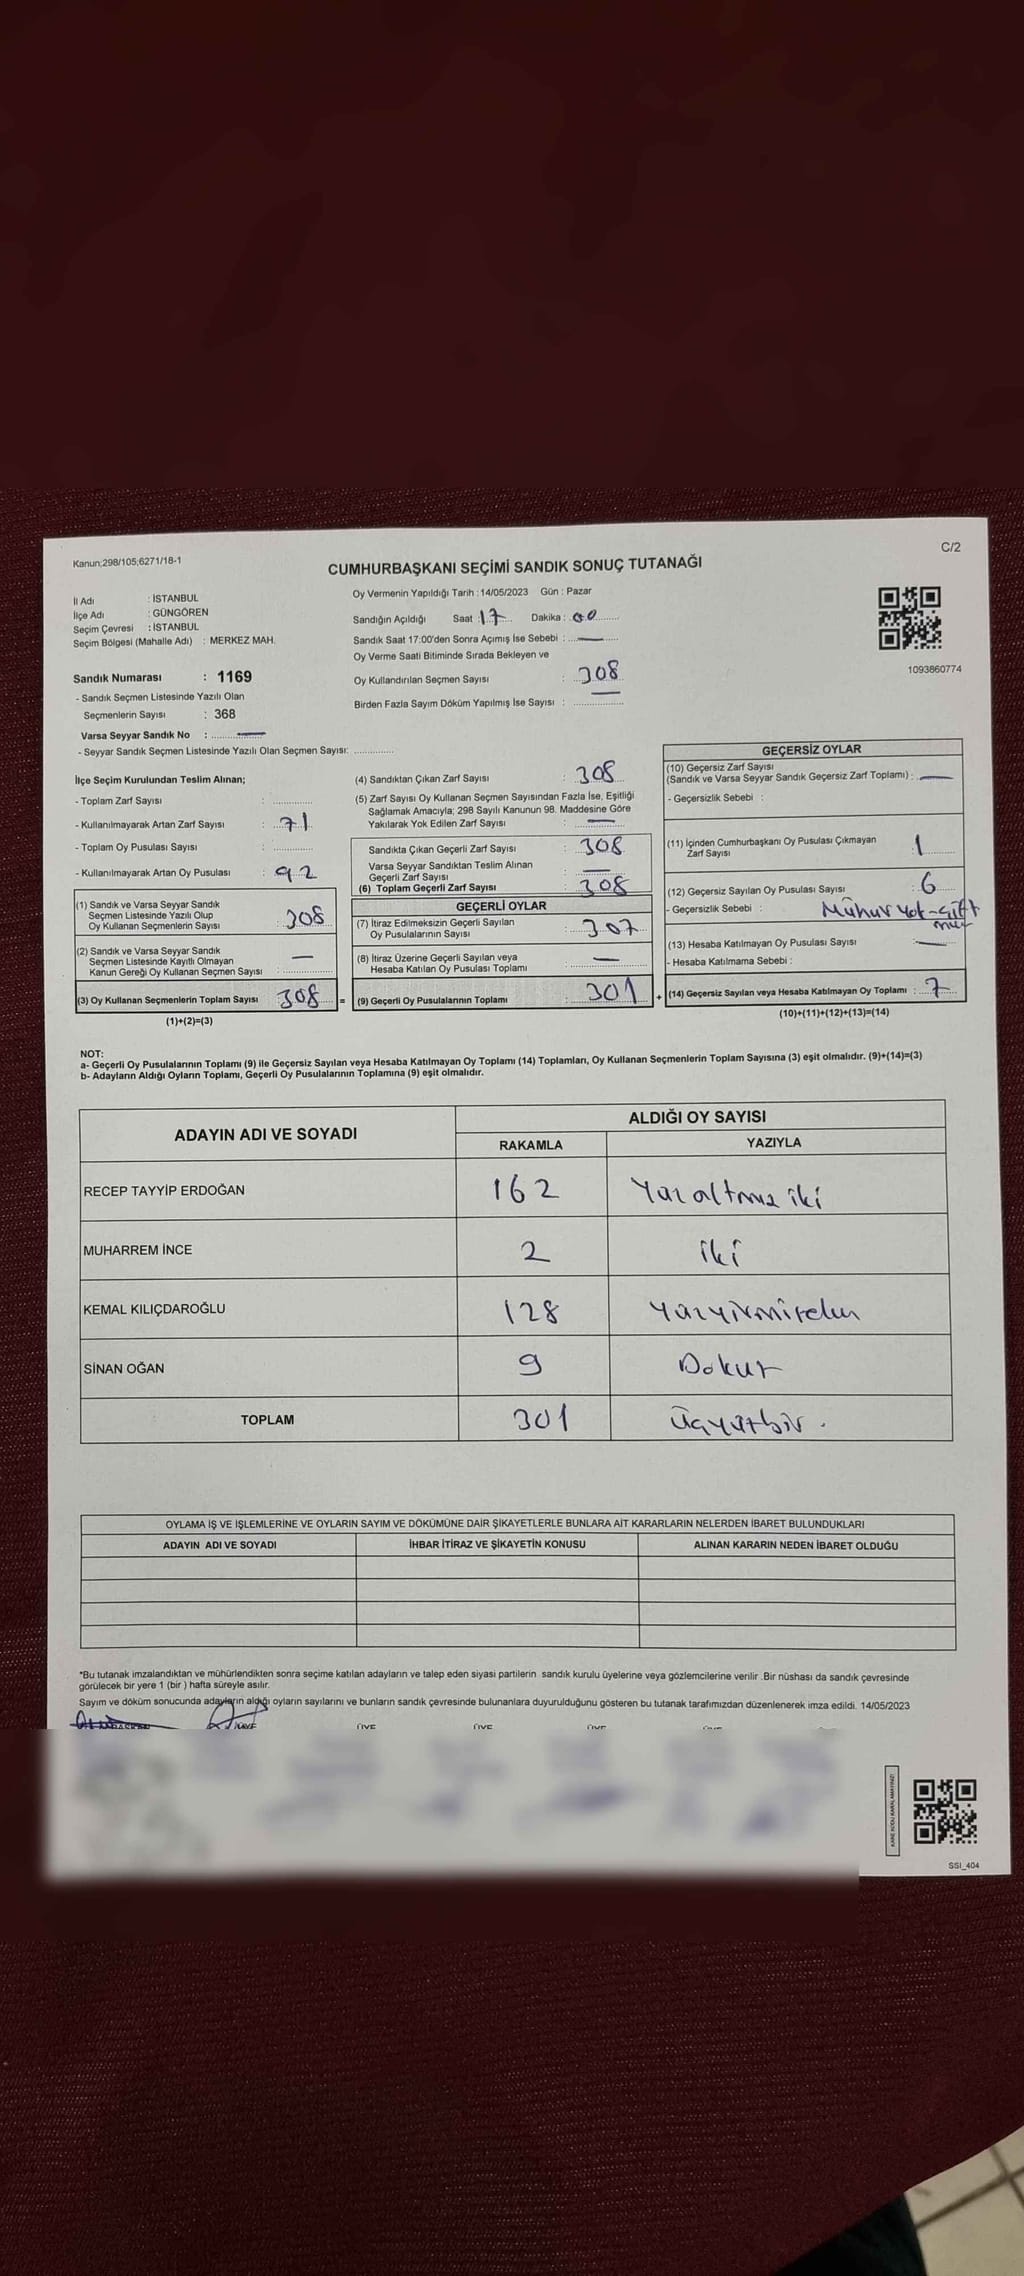 Kanun;298/105;6271/18-1
C/2
CUMHURBAŞKANI SEÇİMİ SANDIK SONUÇ TUTANAĞI
İl Adı : İSTANBUL
İlçe Adı : GÜNGÖREN
Seçim Çevresi : İSTANBUL
Seçim Bölgesi (Mahalle Adı) : MERKEZ MAH.
Sandık Numarası : 1169
- Sandık Seçmen Listesinde Yazılı Olan
Seçmenlerin Sayısı : 368
Varsa Seyyar Sandık No : —
- Seyyar Sandık Seçmen Listesinde Yazılı Olan Seçmen Sayısı: ..............
Oy Vermenin Yapıldığı Tarih : 14/05/2023 Gün : Pazar
Sandığın Açıldığı Saat : 17 Dakika : 00
Sandık Saat 17:00'den Sonra Açımış İse Sebebi : —
Oy Verme Saati Bitiminde Sırada Bekleyen ve
Oy Kullandırılan Seçmen Sayısı : 308
Birden Fazla Sayım Döküm Yapılmış İse Sayısı : —
1093860774
İlçe Seçim Kurulundan Teslim Alınan;
- Toplam Zarf Sayısı : ..............
- Kullanılmayarak Artan Zarf Sayısı : 71
- Toplam Oy Pusulası Sayısı : ..............
- Kullanılmayarak Artan Oy Pusulası : 92
(1) Sandık ve Varsa Seyyar Sandık
Seçmen Listesinde Yazılı Olup
Oy Kullanan Seçmenlerin Sayısı : 308
(2) Sandık ve Varsa Seyyar Sandık
Seçmen Listesinde Kayıtlı Olmayan
Kanun Gereği Oy Kullanan Seçmen Sayısı : —
(3) Oy Kullanan Seçmenlerin Toplam Sayısı : 308 =
(1)+(2)=(3)
(4) Sandıktan Çıkan Zarf Sayısı : 308
(5) Zarf Sayısı Oy Kullanan Seçmen Sayısından Fazla İse, Eşitliği
Sağlamak Amacıyla; 298 Sayılı Kanunun 98. Maddesine Göre
Yakılarak Yok Edilen Zarf Sayısı : —
Sandıkta Çıkan Geçerli Zarf Sayısı : 308
Varsa Seyyar Sandıktan Teslim Alınan
Geçerli Zarf Sayısı : —
(6) Toplam Geçerli Zarf Sayısı : 308
GEÇERLİ OYLAR
(7) İtiraz Edilmeksizin Geçerli Sayılan
Oy Pusulalarının Sayısı : 307
(8) İtiraz Üzerine Geçerli Sayılan veya
Hesaba Katılan Oy Pusulası Toplamı : —
(9) Geçerli Oy Pusulalarının Toplamı : 301 +
GEÇERSİZ OYLAR
(10) Geçersiz Zarf Sayısı
(Sandık ve Varsa Seyyar Sandık Geçersiz Zarf Toplamı) : —
- Geçersizlik Sebebi :
(11) İçinden Cumhurbaşkanı Oy Pusulası Çıkmayan
Zarf Sayısı : 1
(12) Geçersiz Sayılan Oy Pusulası Sayısı : 6
- Geçersizlik Sebebi : Mühür yok - Çift
(13) Hesaba Katılmayan Oy Pusulası Sayısı : —
- Hesaba Katılmama Sebebi :
(14) Geçersiz Sayılan veya Hesaba Katılmayan Oy Toplamı : 7
(10)+(11)+(12)+(13)=(14)
NOT:
a- Geçerli Oy Pusulalarının Toplamı (9) ile Geçersiz Sayılan veya Hesaba Katılmayan Oy Toplamı (14) Toplamları, Oy Kullanan Seçmenlerin Toplam Sayısına (3) eşit olmalıdır. (9)+(14)=(3)
b- Adayların Aldığı Oyların Toplamı, Geçerli Oy Pusulalarının Toplamına (9) eşit olmalıdır.
ADAYIN ADI VE SOYADI
ALDIĞI OY SAYISI
RAKAMLA YAZIYLA
RECEP TAYYİP ERDOĞAN 162 Yüz altmış iki
MUHARREM İNCE 2 iki
KEMAL KILIÇDAROĞLU 128 Yüzyirmisekiz
SİNAN OĞAN 9 Dokuz
TOPLAM 301 Üçyüzbir.
OYLAMA İŞ VE İŞLEMLERİNE VE OYLARIN SAYIM VE DÖKÜMÜNE DAİR ŞİKAYETLERLE BUNLARA AİT KARARLARIN NELERDEN İBARET BULUNDUKLARI
ADAYIN ADI VE SOYADI İHBAR İTİRAZ VE ŞİKAYETİN KONUSU ALINAN KARARIN NEDEN İBARET OLDUĞU
*Bu tutanak imzalandıktan ve mühürlendikten sonra seçime katılan adayların ve talep eden siyasi partilerin sandık kurulu üyelerine veya gözlemcilerine verilir .Bir nüshası da sandık çevresinde
görülecek bir yere 1 (bir ) hafta süreyle asılır.
Sayım ve döküm sonucunda adayların aldığı oyların sayılarını ve bunların sandık çevresinde bulunanlara duyurulduğunu gösteren bu tutanak tarafımızdan düzenlenerek imza edildi. 14/05/2023
BAŞKAN ÜYE ÜYE ÜYE ÜYE
SSI_404